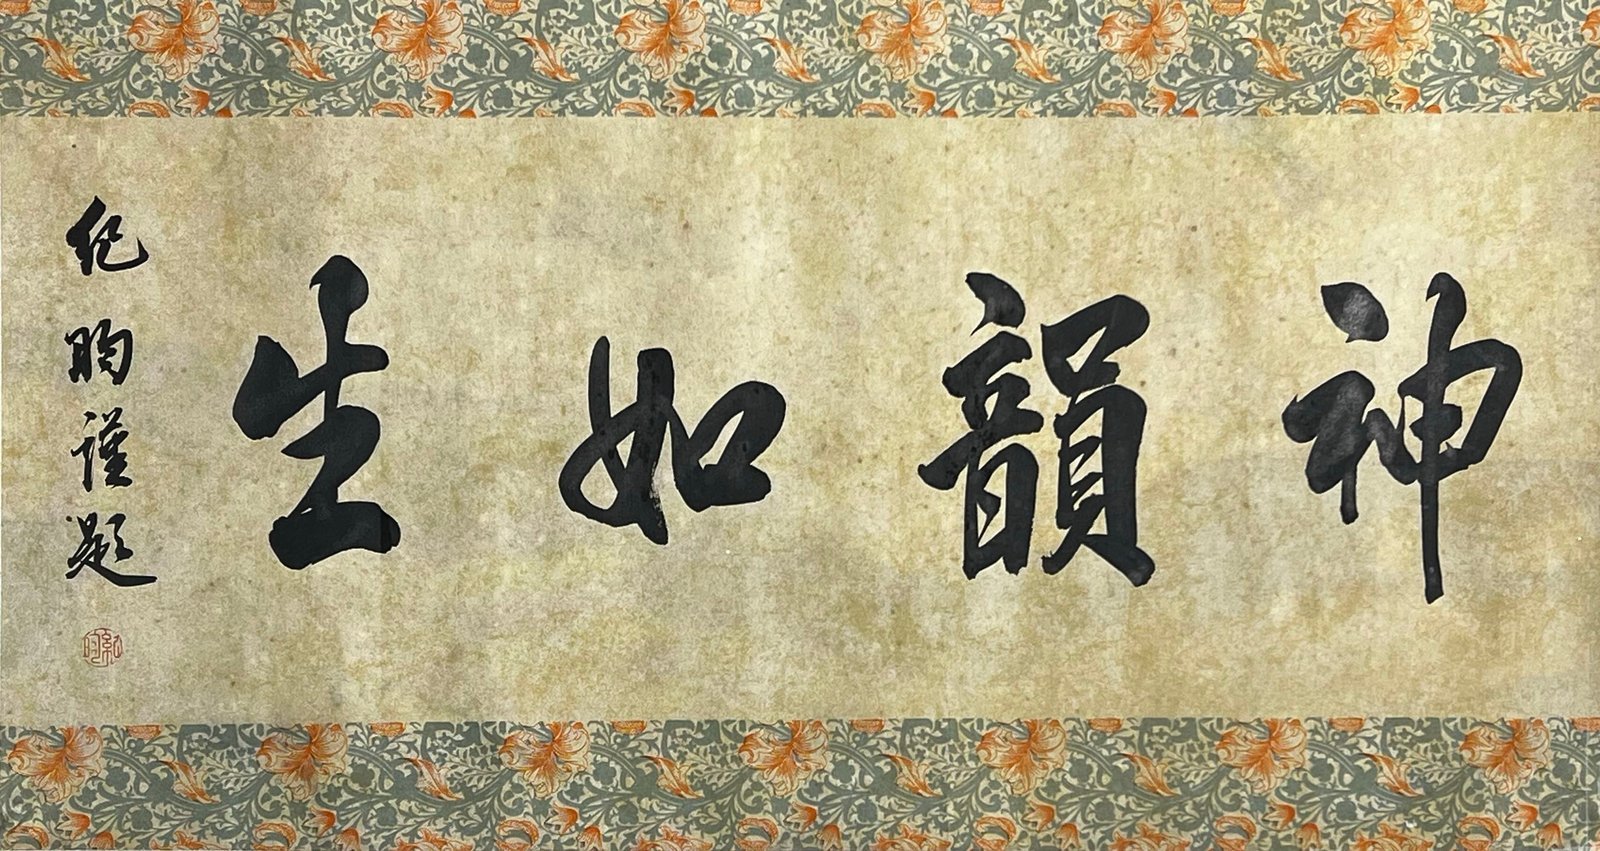 神韻如生
紀昀謹題
紀昀